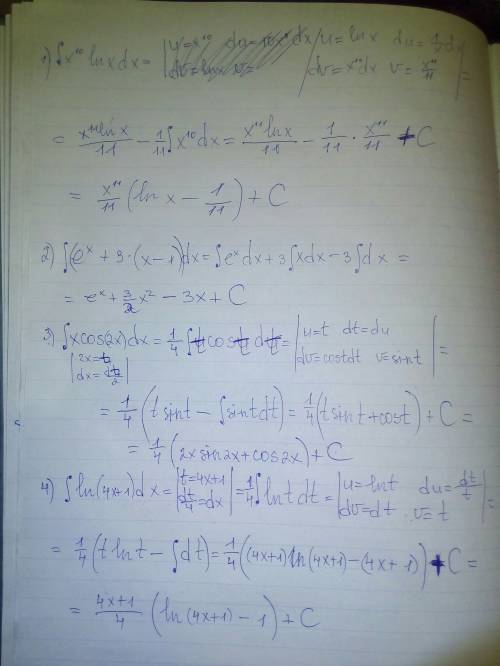 1) ∫x¹⁰ ln x dx = | u = ln x du = 1/x dx
dv = x¹⁰dx v = x¹¹/11 | =
= x¹¹ ln x/11 − 1/11 ∫x¹⁰dx = x¹¹ ln x/11 − 1/11 · x¹¹/11 + C
= x¹¹/11 (ln x − 1/11) + C
2) ∫(eˣ + 3·(x−1))dx = ∫eˣdx + 3∫xdx − 3∫dx =
= eˣ + 3/2 x² − 3x + C
3) ∫xcos(2x)dx = 1/4 ∫t cost dt = | u=t dt=du
| 2x=t dx=dt/2 | dv=costdt v=sint | =
= 1/4 (t sint − ∫sintdt) = 1/4 (t sint + cost) + C =
= 1/4 (2x sin2x + cos2x) + C
4) ∫ln(4x+1)dx = | t=4x+1 dt/4=dx | = 1/4 ∫lnt dt = | u=lnt du=dt/t
dv=dt v=t | =
= 1/4 (t lnt − ∫dt) = 1/4 ((4x+1)ln(4x+1) − (4x+1)) + C =
= 4x+1/4 (ln(4x+1) − 1) + C